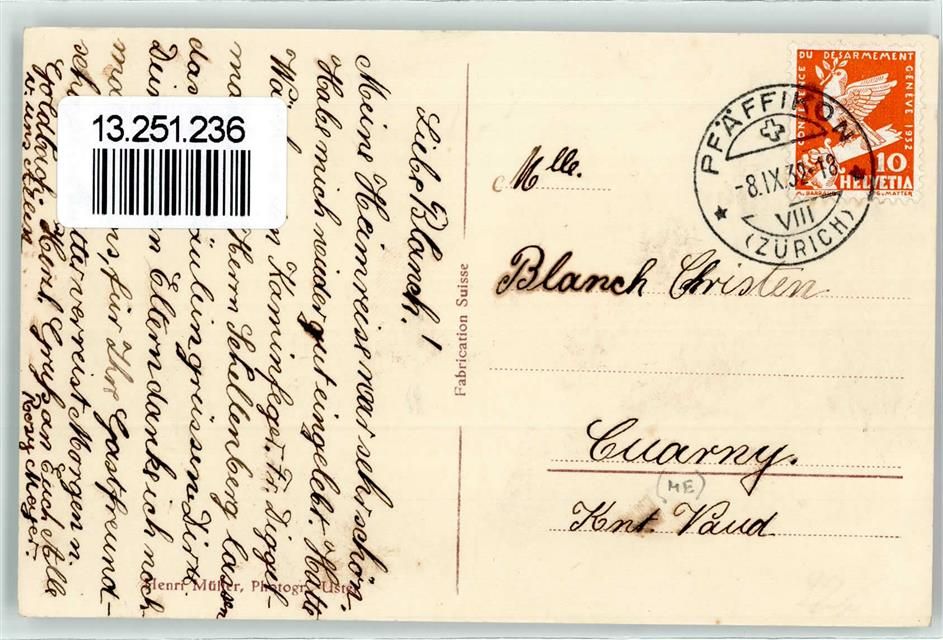 13.251.236
Lib. Blanch!
Meine Heimreise war sehr schön.
Habe mich wieder gut eingelebt. Hatte
Kaminfeger. Fr. Diggel-
Herrn Schellenberg lassen
das äulein grüssen. Dir
Dein n Eltern danke ich noch
für Ihre Gastfreund-
sch tter verreist Morgen n.
Gottlieb. Herzl. Gruß an Euch Alle
Rosy
Henri Müller, Photogr. Uster
Fabrication Suisse
CONFERENCE DU DESARMEMENT GENEVE 1932
10
HELVETIA
M. BARRAUD G. MATTER
PFÄFFIKON
-8.IX.32-18
VIII
(ZÜRICH)
Mlle.
Blanch Christen
Cuarny.
(ME)
Knt. Vaud